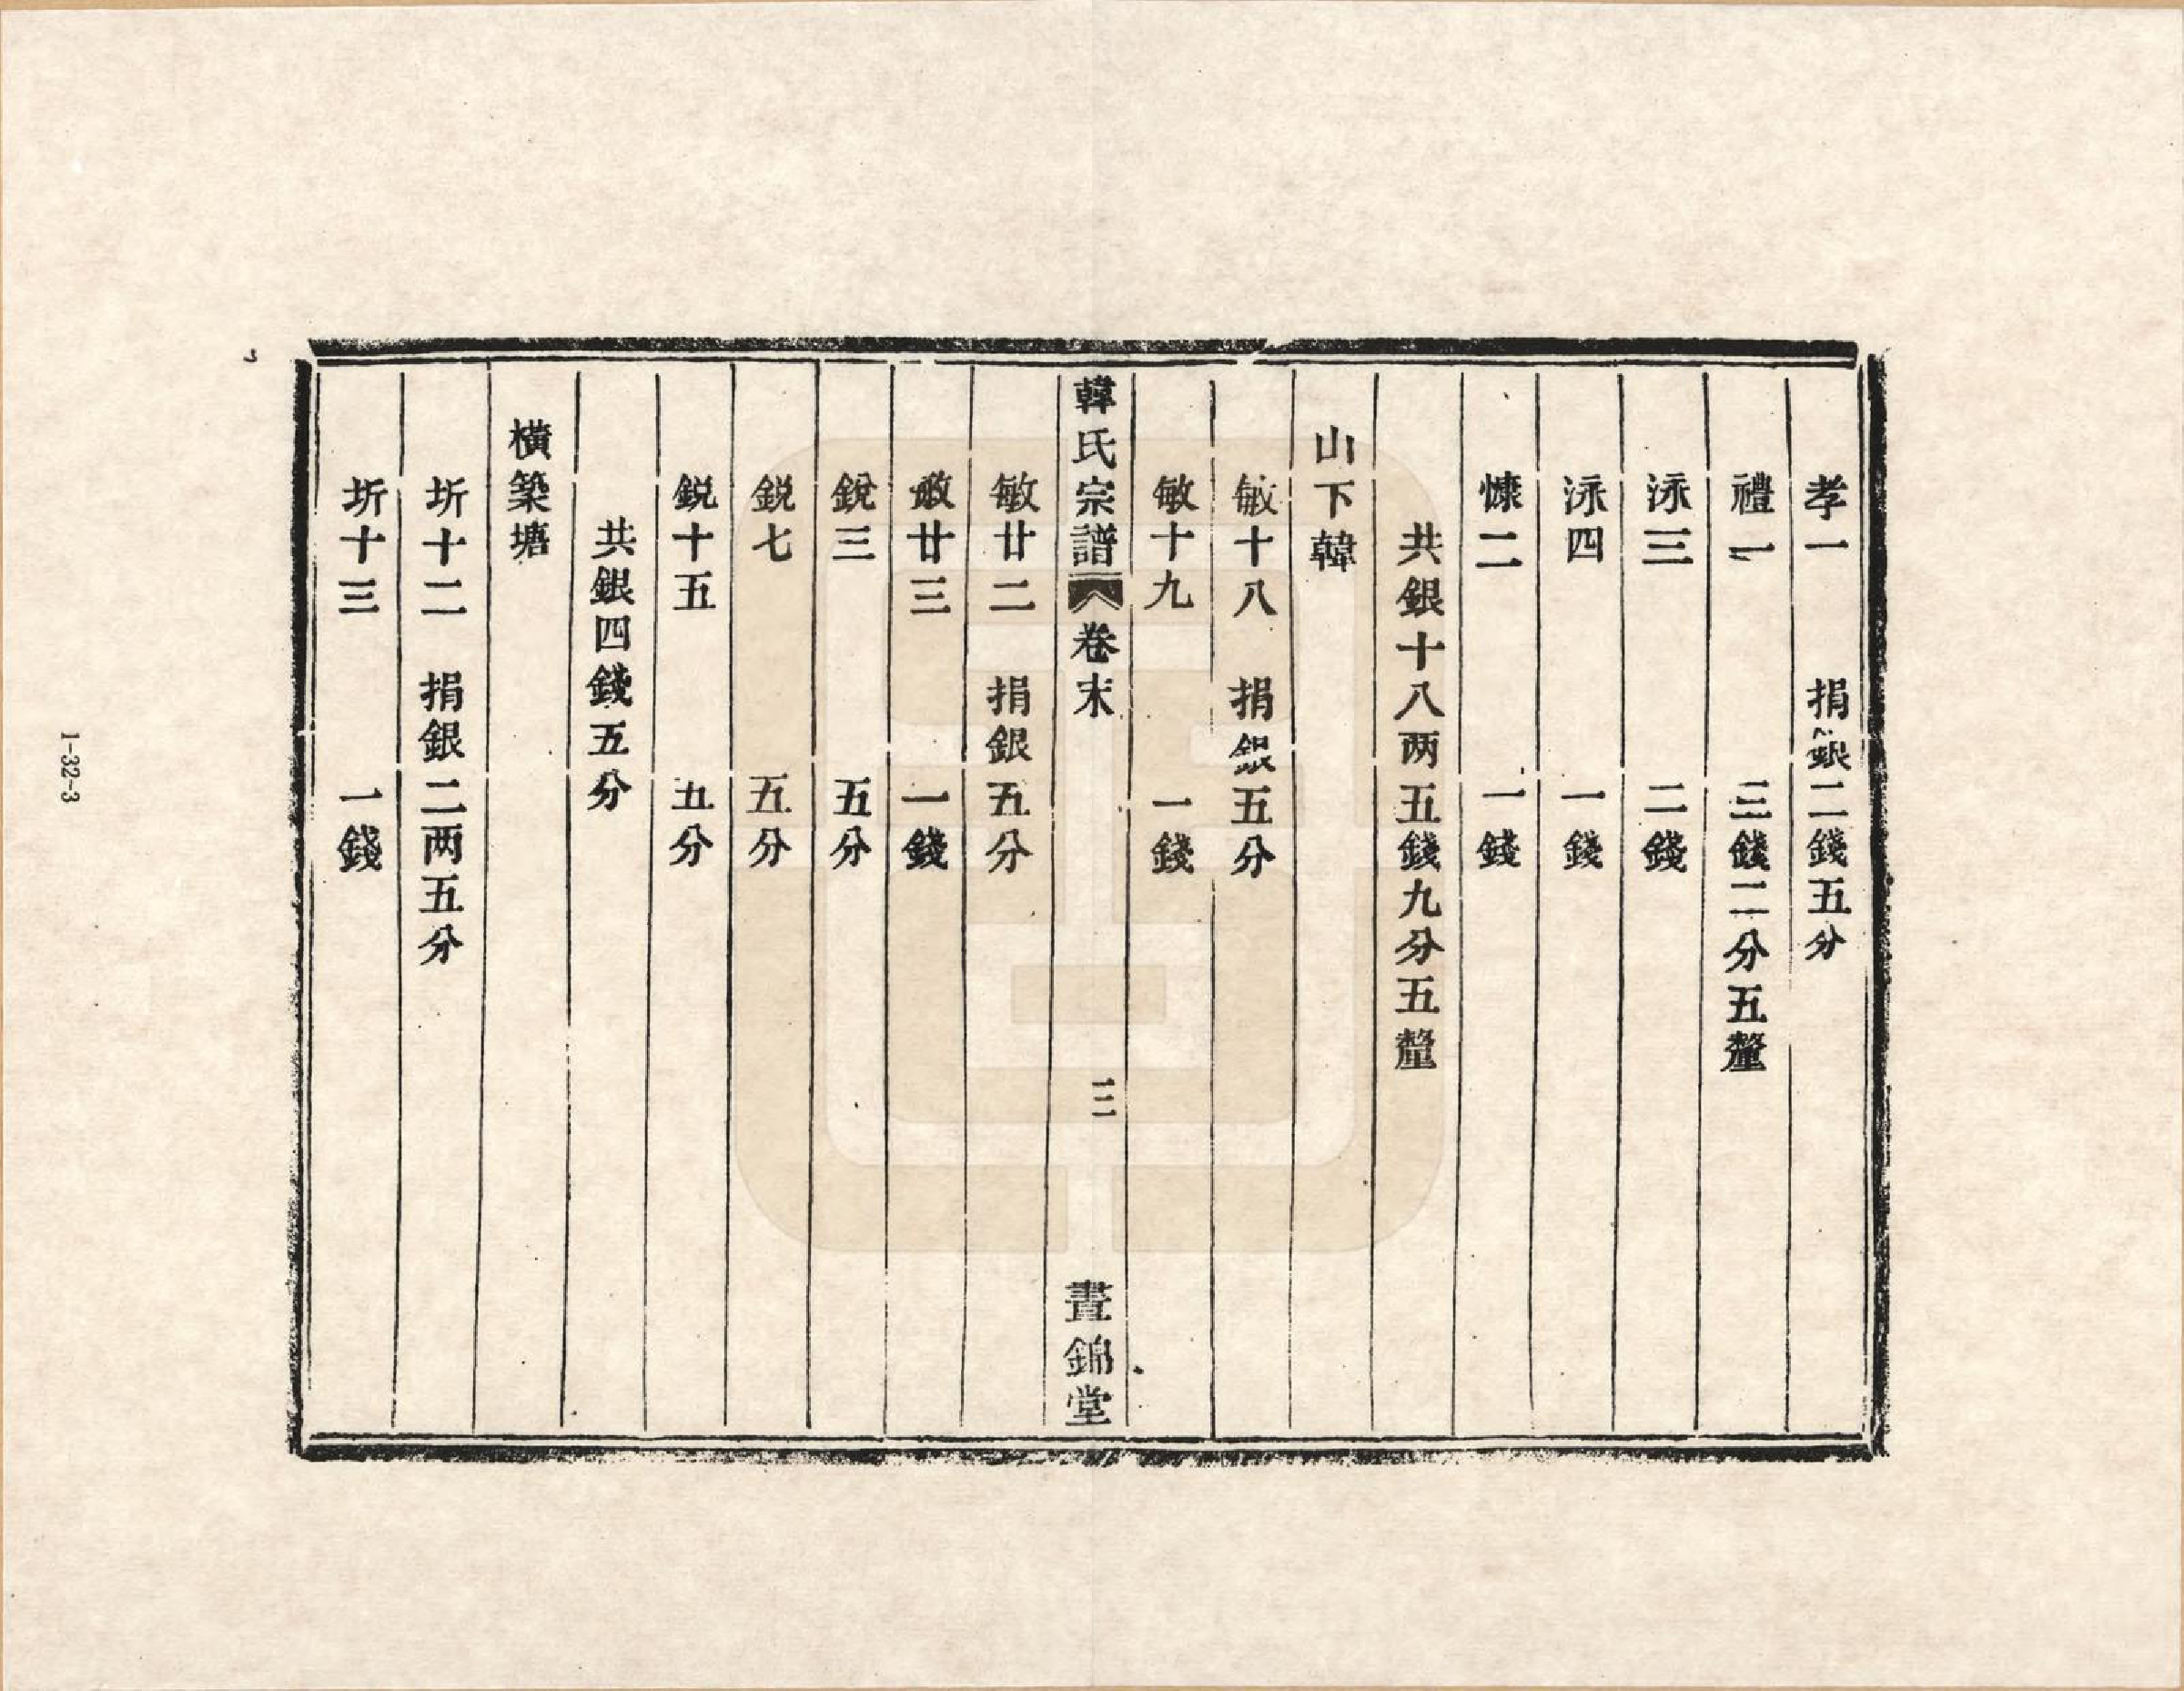 孝一　捐銀二錢五分
禮一　三錢二分五釐
泳三　二錢
泳四　一錢
慷二　一錢
共銀十八两五錢九分五釐
山下韓
敏十八　捐銀五分
敏十九　一錢
韓氏宗譜　卷末　三　晝錦堂
敏廿二　捐銀五分
敏廿三　一錢
銳三　五分
銳七　五分
銳十五　五分
共銀四錢五分
橫築塘
圻十二　捐銀二两五分
圻十三　一錢
1-32-3